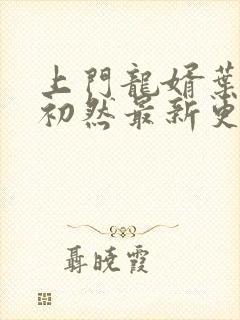 上門龍婿葉
初然最新更
聶曉霞